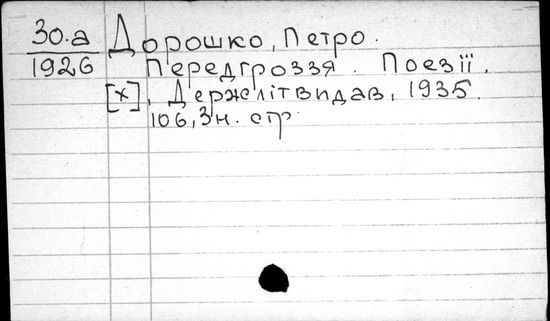 30.а Дорошко, Петро.
1926 Передгроззя. Поезії.
[х], Держлітвидав, 1935.
106, 3 н. стр.